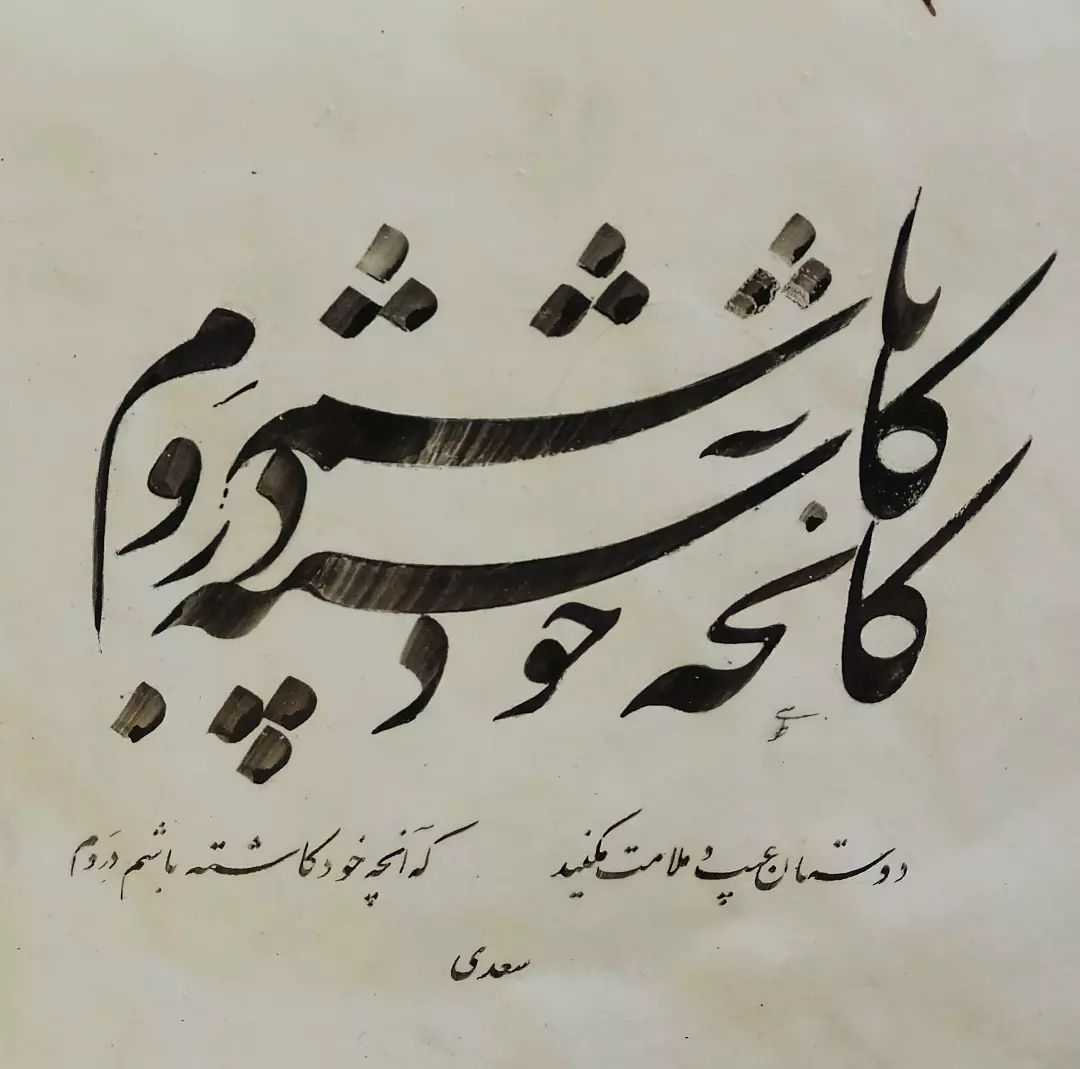 کانچه خود کاشته باشم درَوم
دوستان عیب و ملامت مکنید که آنچه خود کاشته باشم درَوم
سعدی